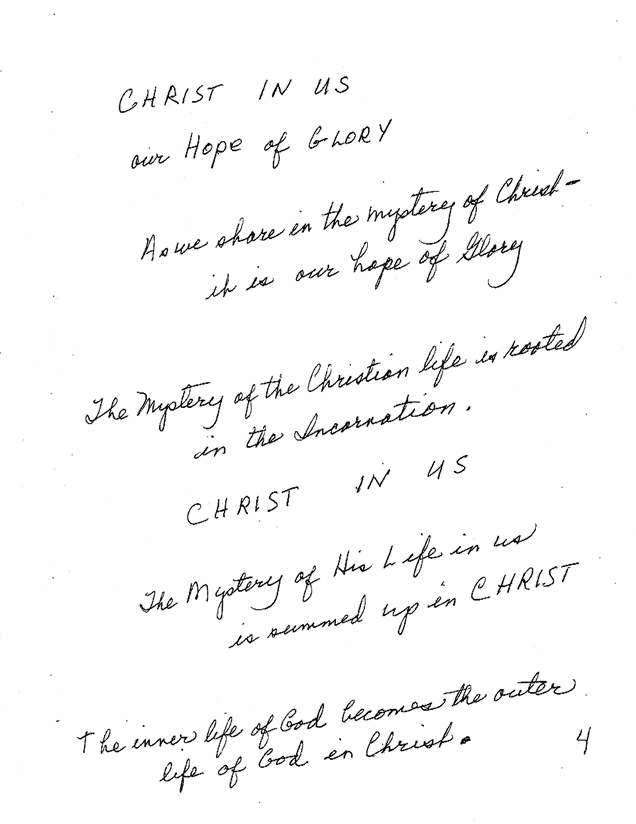 CHRIST IN US
our Hope of GLORY
As we share in the mystery of Christ -
it is our hope of Glory
The Mystery of the Christian life is rooted
in the Incarnation.
CHRIST IN US
The Mystery of His Life in us
is summed up in CHRIST
The inner life of God becomes the outer
life of God in Christ.
4